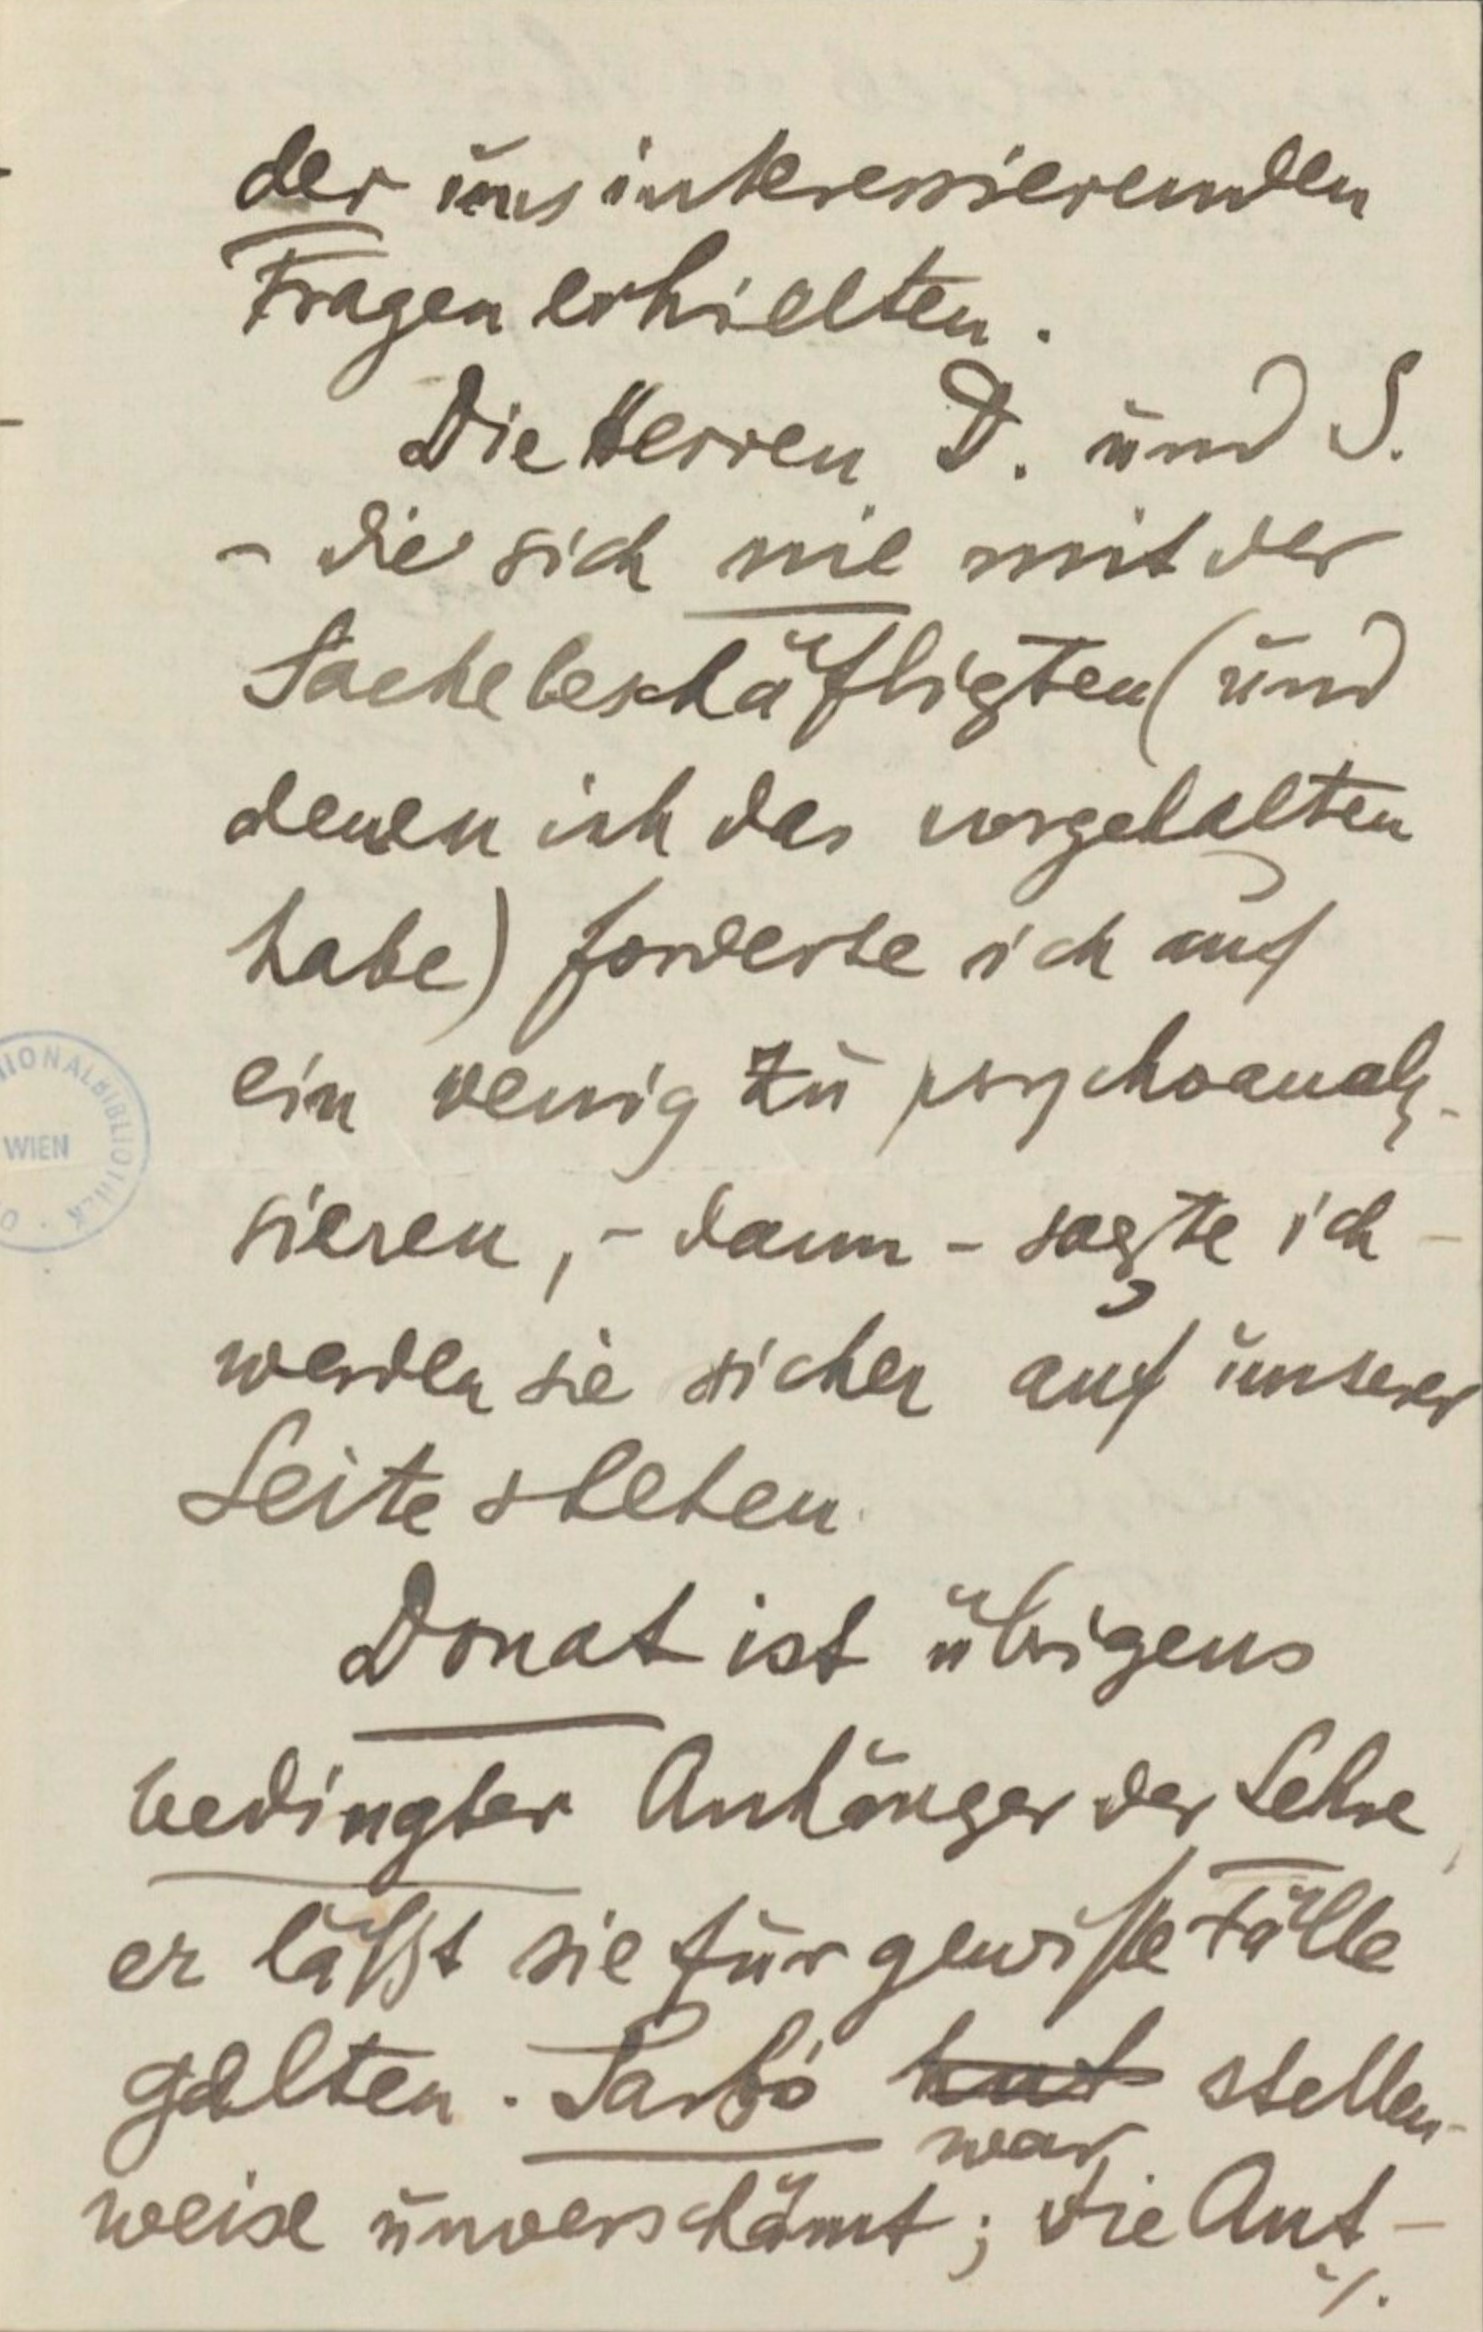 der uns interessierenden
Fragen erhielten.
Die Herren D. und S.
- die sich nie mit der
Sache beschäftigten (und
denen ich das vorgehalten
habe) forderte ich auf
ein wenig zu psychoanaly-
sieren, - dann - sagte ich -
werden sie sicher auf unserer
Seite stehen.
Donat ist übrigens
bedingter Anhänger der Lehre,
er läßt sie für gewiße Fälle
gelten. Sarbó hat stellen-
war
weise unverschämt; die Ant-
./.
IONALBIBLIOTHEK
WIEN